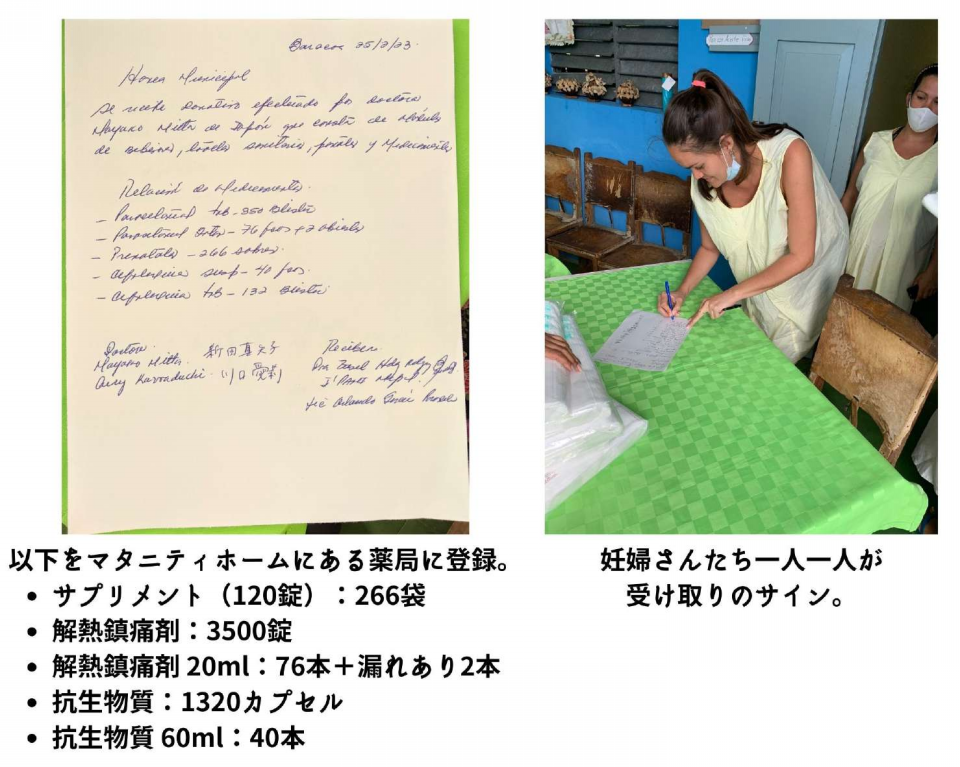 Baracoa 25/3/23.
Hogar Municipal
Se recibe donativo efectuado por doctora
Mayako Nitta de Japón que consta de módulos
de , sanitarias, y Medicamentos
Relación de Medicamentos.
- Paracetamol tab - 350 blister
- Paracetamol Gotas - 76 fcos + 2 abiertos
- Prenatales - 266 sobres.
- Cefalexina susp - 40 fcos.
- Cefalexina tab - 132 Blister
Doctora. Reciben
Mayako Nitta. 新田真矢子 Dra
Kawaguchi - 川口愛
Lic Orlando
以下をマタニティホームにある薬局に登録。
• サプリメント（120錠）：266袋
• 解熱鎮痛剤：3500錠
• 解熱鎮痛剤 20ml：76本＋漏れあり2本
• 抗生物質：1320カプセル
• 抗生物質 60ml：40本
妊婦さんたち一人一人が
受け取りのサイン。